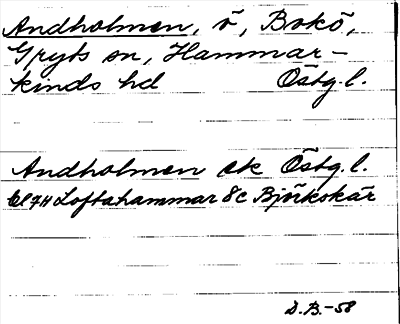 Andholmen, ö, Bokö,
Gryts sn, Hammar-
kinds hd Östg. l.
Andholmen ek Östg. l.
bl 7H Loftahammar 8c Björkskär
D.B.-58